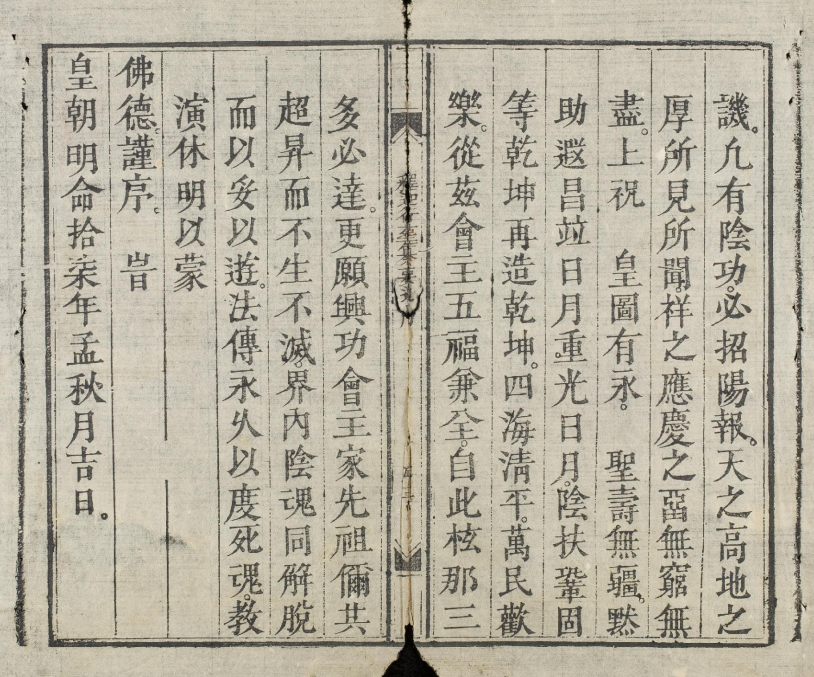 譏。凢有陰功。必招陽報。天之高地之
厚所見所聞。祥之應慶之畱無窮無
盡。上祝　皇圖有永。　聖壽無疆。黙
助遐昌竝日月重光日月。陰扶鞏固
等乾坤再造乾坤。四海清平。萬民歡
樂。從茲會主五福兼全。自此核那三
多必達。更願興功會主家先祖俻共
超昇而不生不滅。界內陰魂同解脫
而以安以遊。法傳永久以度死魂。教
演休明以蒙
佛德。謹序。　旹
皇朝明命拾柒年孟秋月吉日。